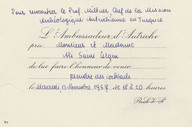 Pour rencontrer le Prof. Miltner, Chef de la Mission
Archéologique Autrichienne en Turquie
L'Ambassadeur d'Autriche
prie Monsieur et Madame
Ali Sami Ülgen
de lui faire l'honneur de venir
prendre des cocktails
le Mercredi 13 Novembre 1957 de 18 à 20 heures